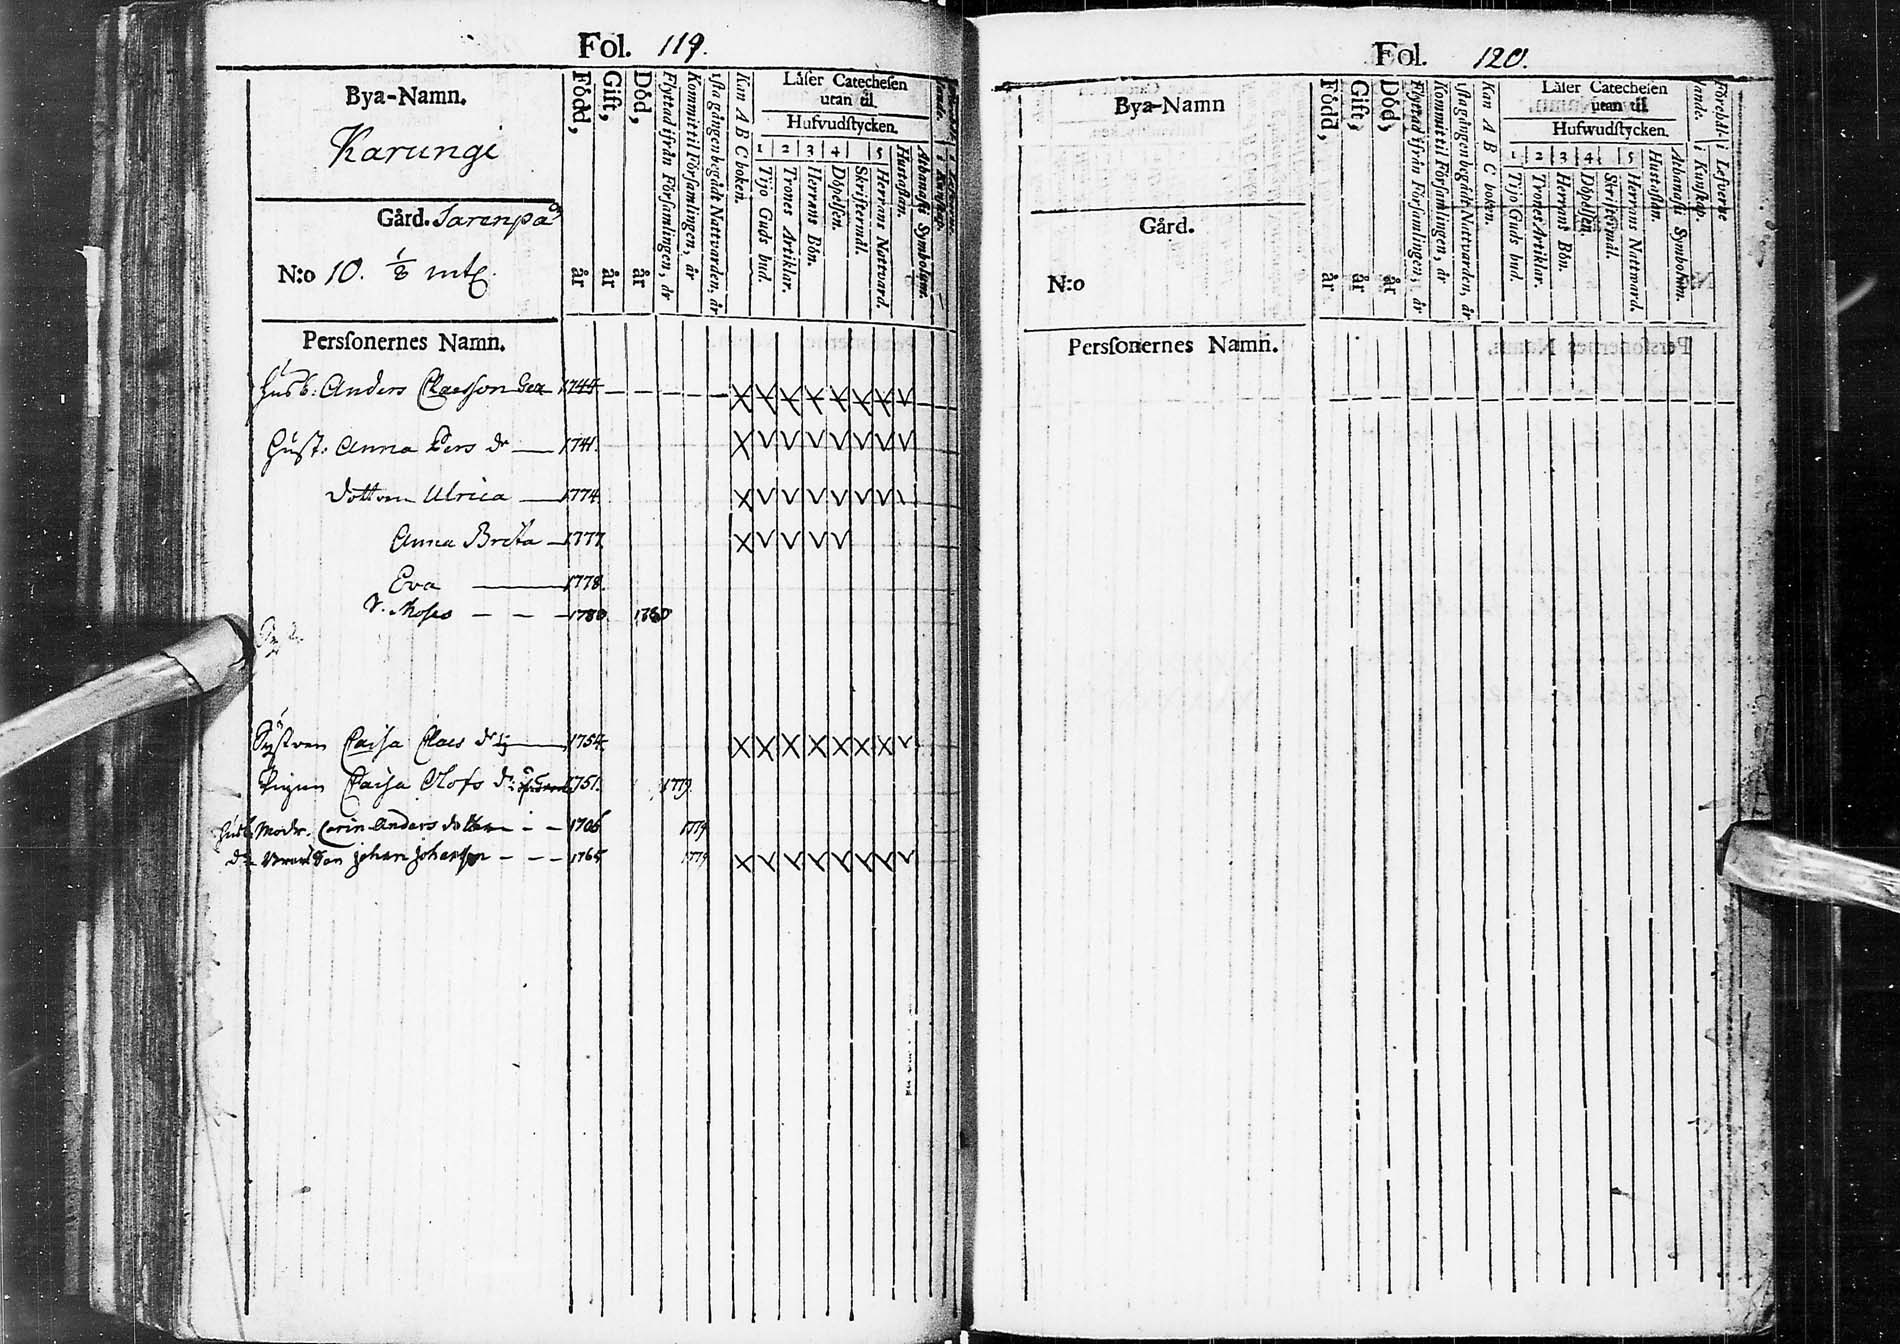 Fol. 119.
Bya-Namn.
Karungi
Gård. Sarenpä
N:o 10. 1/8 mtl.
Född, år
Gift, år
Död, år
Flyttad ifrån Församlingen, år
Kommit til Församlingen, år
1sta gången begådt Nattvarden, år
Kan A B C boken.
Läser Catechesen
utan til.
Hufvudstycken.
1 2 3 4 5
Tijo Guds bud.
Trones Artiklar.
Herrans Bön.
Döpelsen.
Skriftermål.
Herrans Nattvard.
Hustaflan.
Athanasii Symbolum.
Persfonernes Namn.
Husb: Anders Claesson 1744
Hust: Anna Pers dr 1741.
Dottren Ulrica 1774.
Anna Brita 1777.
Eva 1778.
Moses 1780 1780
Systren Caisa Claes dr 1754.
Pigan Caisa Olofs dr 1751. 1779.
Husb. Modr. Carin Anders dotter 1706 1779
Son Johan Johansson 1765 1779
Fol. 120.
Bya-Namn
Gård.
N:o
Född, år
Gift, år
Död, år
Flyttad ifrån Församlingen, år
Kommit til Församlingen, år
1sta gången begådt Nattvarden, år
Kan A B C boken.
Läser Catechesen
utan til.
Hufwudstycken.
1 2 3 4 5
Tijo Guds bud.
Trones Artiklar.
Herrans Bön.
Döpelsen.
Skriftermål.
Herrans Nattvard.
Hustaflan.
Athanasii Symbolum.
Förehållande.
i Kunskap.
i Lefverne
Persfonernes Namn.